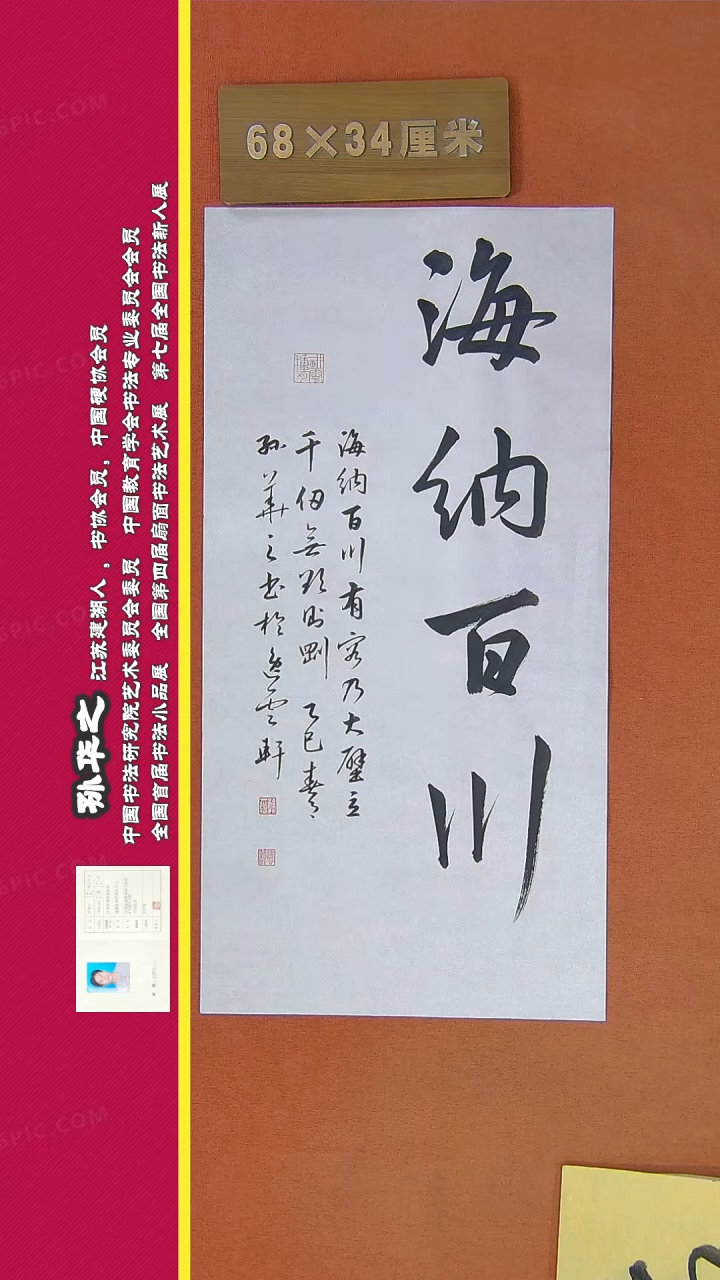 68×34厘米
海纳百川
海纳百川有容乃大壁立
千仞無欲則剛 乙巳春
孙華之书於逸云軒
孙华之 江苏建湖人,书协会员,中国硬协会员
中国书法研究院艺术委员会委员 中国教育学会书法专业委员会会员
全国首届书法小品展 全国第四届扇面书法艺术展 第七届全国书法新人展